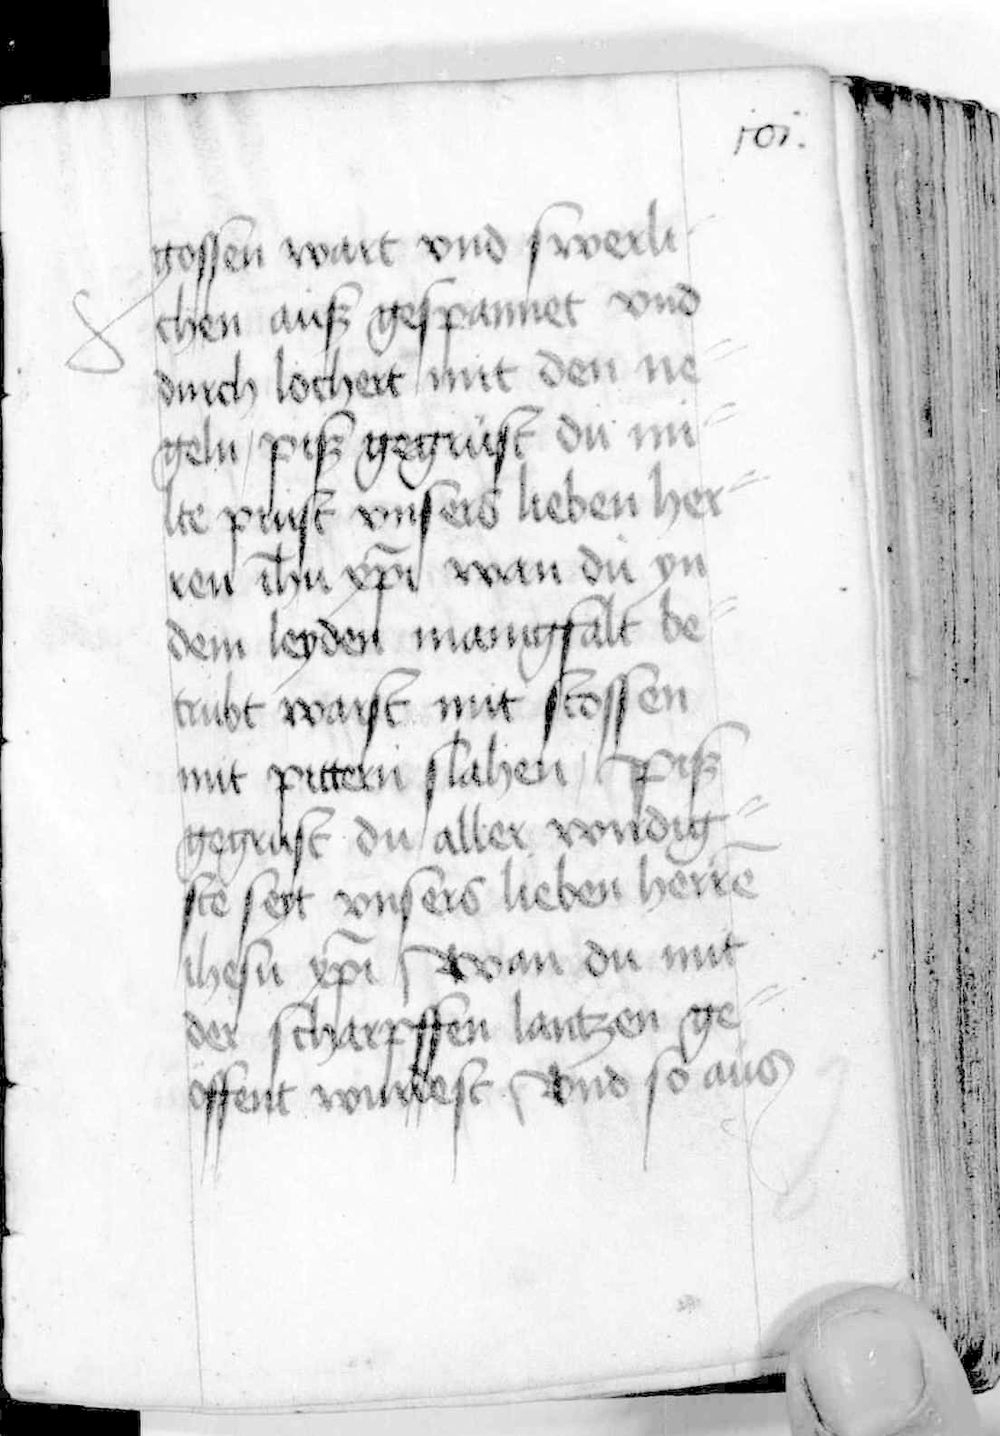 101.
gossen wart vnd swerli-
chen auß gespannet vnd
durch löchert mit den ne-
geln / piß gegrüst du mi-
lte prust vnsers lieben her-
ren ih̄u xp̄i wan dü yn
dem leyden manigfalt be-
trübt warst mit stossen
mit pittern slahen / piß
gegrust du aller wirdig-
ste seyt vnsers lieben herrē
ihesu xp̄i / wan du mit
der scharpffen lantzen ge-
öffent wurdest / vnd so aus